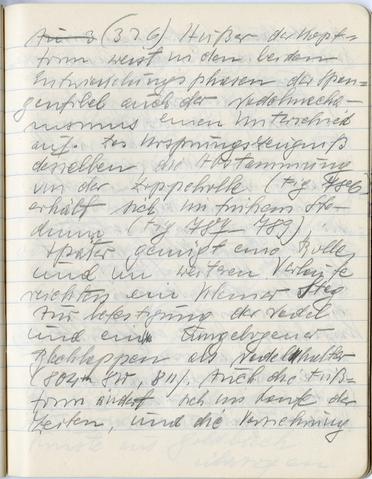 (326) Außer der Kopf-
form weist in den beiden
Entwicklungsphasen der Span-
genfibel auch der Nadelmecha-
nismus einen Unterschied
auf. Zur Ursprungszeugniß
desselben die Abstammung
von der Zoppelrolle (Fig 786
erhält sich im frühen Sta-
dium (Fig 787 789)
später genügt eine Rolle
und im weiteren Verlaufe
reichten ein kleiner Steg
zur Befestigung der Nadel
und ein umgebogener
Blechlappen als Nadelhalter
(804 811). Auch die Fuß-
form ändert sich im Laufe der
Zeiten, und die Verzierung